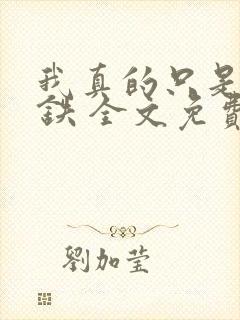 我真的只是
鉄全文免費
劉加莹